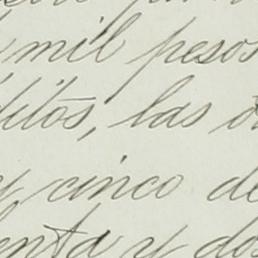 mil pesos
ditos, las
y cinco de
enta y dos